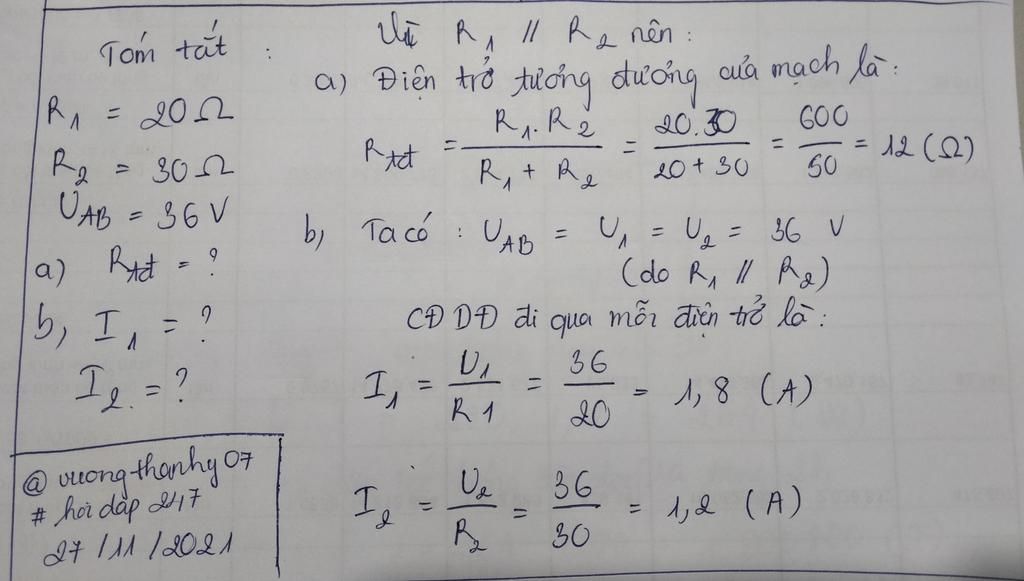 Tóm tắt :
R₁ = 20 Ω
R₂ = 30 Ω
U_AB = 36 V
a) Rtđ = ?
b, I₁ = ?
I₂ = ?
@ vuongthanhy07
# hỏi đáp 247
27 / 11 / 2021
Vì R₁ // R₂ nên :
a) Điện trở tương đương của mạch là :
Rtđ = R₁ . R₂ / R₁ + R₂ = 20.30 / 20 + 30 = 600 / 50 = 12 (Ω)
b, Ta có : U_AB = U₁ = U₂ = 36 V
(do R₁ // R₂)
CĐDĐ đi qua mỗi điện trở là :
I₁ = U₁ / R1 = 36 / 20 = 1,8 (A)
I₂ = U₂ / R₂ = 36 / 30 = 1,2 (A)